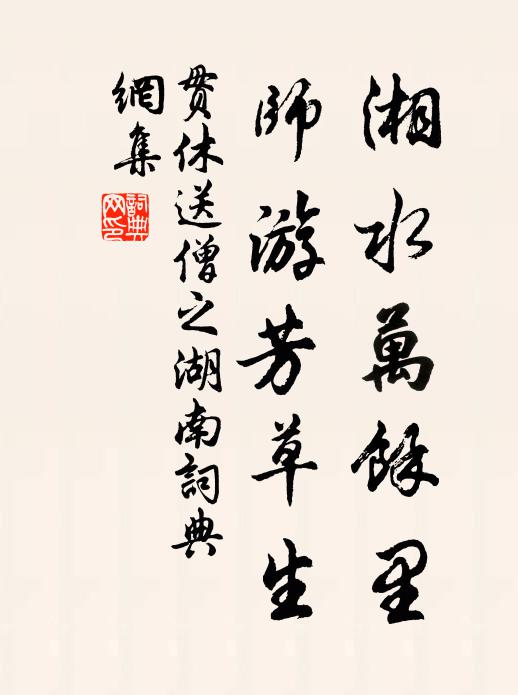 湘水萬餘里
師游芳草生
貫休送僧之湖南詞典
網集
詞典
网印